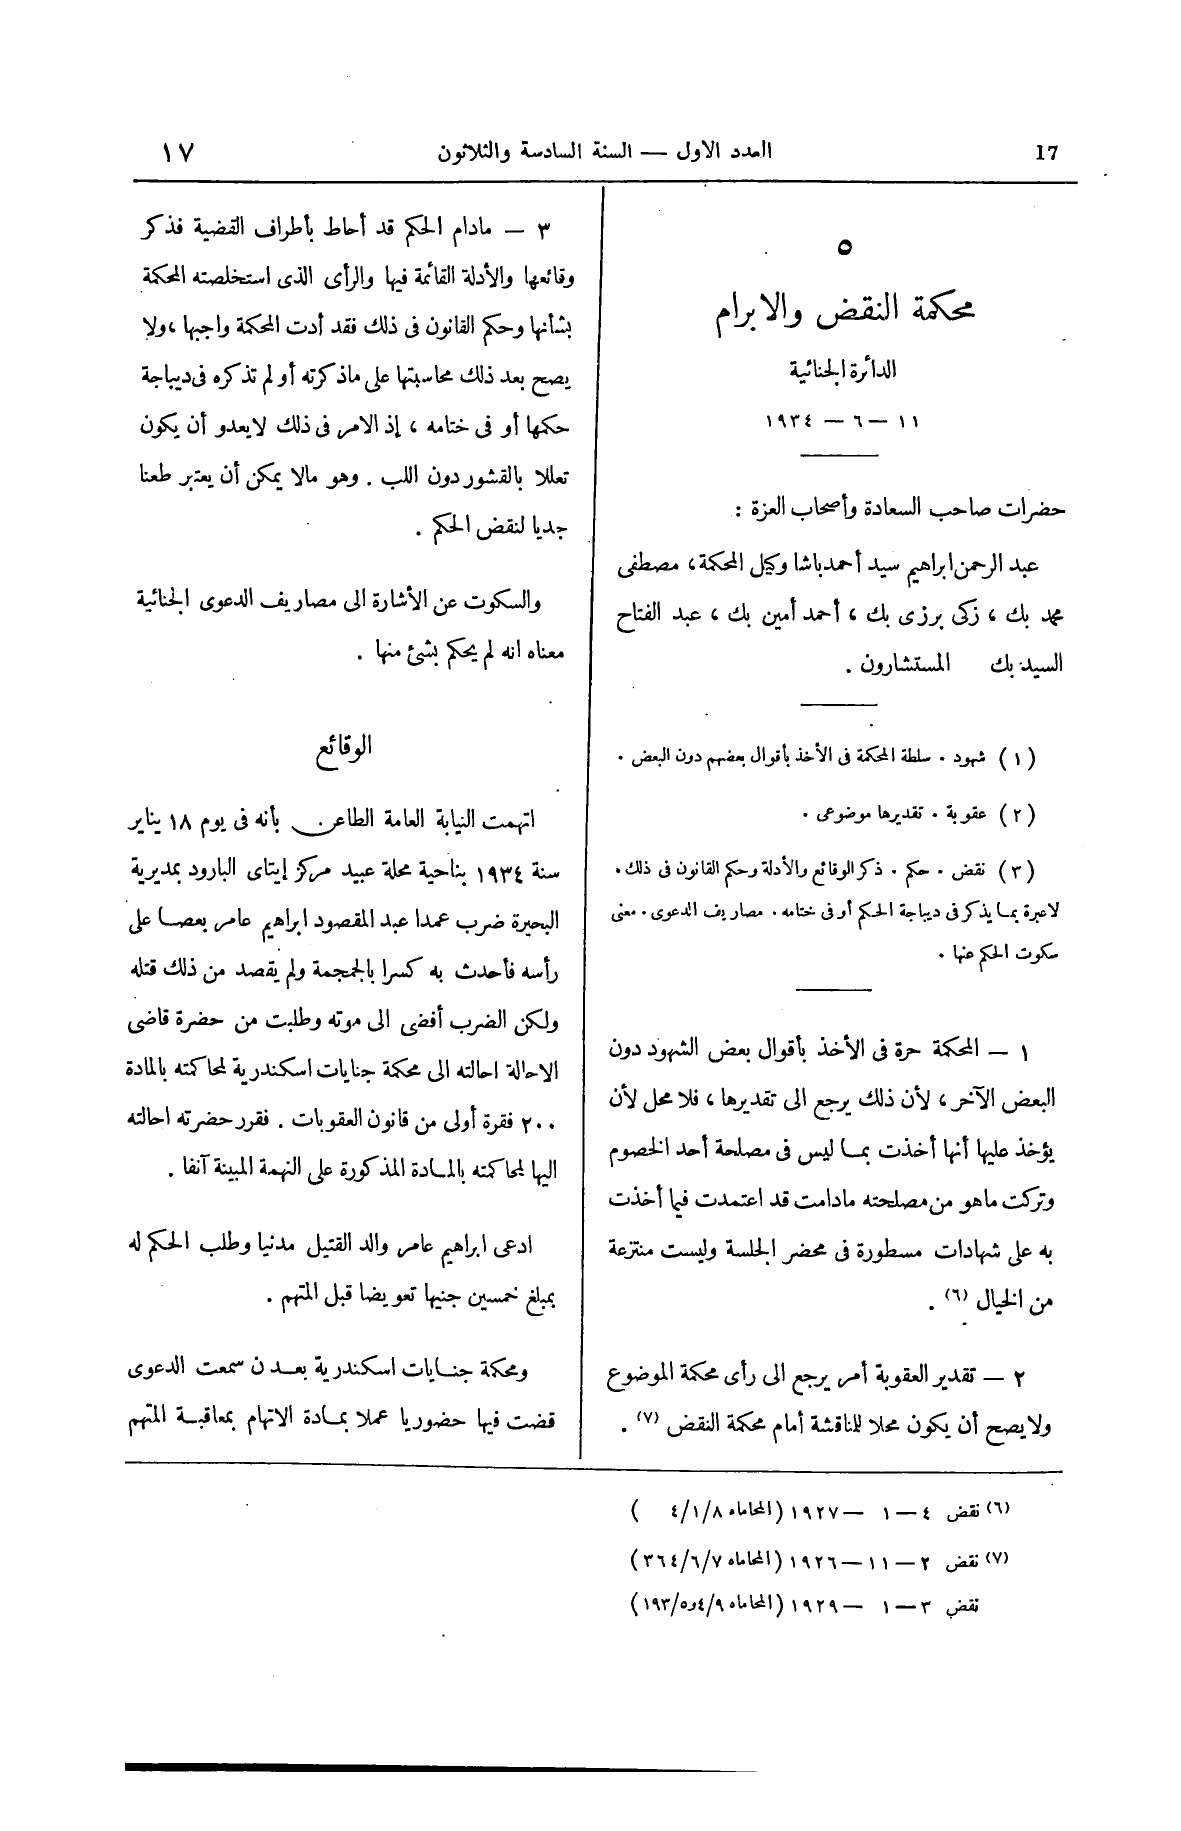 17
العدد الاول — السنة السادسة والثلاثون
١٧
٥
محكمة النقض والابرام
الدائرة الجنائية
١١ — ٦ — ١٩٣٤
حضرات صاحب السعادة وأصحاب العزة :
عبد الرحمن ابراهيم سيد أحمد باشا وكيل المحكمة، مصطفى
محمد بك ، زكى برزى بك ، أحمد أمين بك ، عبد الفتاح
السيد بك المستشارون .
(١) شهود . سلطة المحكمة فى الأخذ بأقوال بعضهم دون البعض .
(٢) عقوبة . تقديرها موضوعى .
(٣) نقض . حكم . ذكر الوقائع والأدلة وحكم القانون فى ذلك .
لاعبرة بما يذكر فى ديباجة الحكم أو فى ختامه . مصاريف الدعوى . معنى
سكوت الحكم عنها .
١ — المحكمة حرة فى الأخذ بأقوال بعض الشهود دون
البعض الآخر، لأن ذلك يرجع الى تقديرها ، فلا محل لأن
يؤخذ عليها أنها أخذت بما ليس فى مصلحة أحد الخصوم
وتركت ماهو من مصلحته مادامت قد اعتمدت فيما أخذت
به على شهادات مسطورة فى محضر الجلسة وليست منتزعة
من الخيال (٦) .
٢ — تقدير العقوبة أمر يرجع الى رأى محكمة الموضوع
ولا يصح أن يكون محلا للمناقشة أمام محكمة النقض (٧) .
٣ — مادام الحكم قد أحاط بأطراف القضية فذكر
وقائعها والأدلة القائمة فيها والرأى الذى استخلصته المحكمة
بشأنها وحكم القانون فى ذلك فقد أدت المحكمة واجبها ، ولا
يصح بعد ذلك محاسبتها على ماذكرته أو لم تذكره فى ديباجة
حكمها أو فى ختامه ، إذ الامر فى ذلك لايعدو أن يكون
تعللا بالقشور دون اللب . وهو مالا يمكن أن يعتبر طعنا
جديا لنقض الحكم .
والسكوت عن الأشارة الى مصاريف الدعوى الجنائية
معناه انه لم يحكم بشئ منها .
الوقائع
اتهمت النيابة العامة الطاعن بأنه فى يوم ١٨ يناير
سنة ١٩٣٤ بناحية محلة عبيد مركز إيتاى البارود بمديرية
البحيرة ضرب عمدا عبد المقصود ابراهيم عامر بعصا على
رأسه فأحدث به كسرا بالجمجمة ولم يقصد من ذلك قتله
ولكن الضرب أفضى الى موته وطلبت من حضرة قاضى
الاحالة احالته الى محكمة جنايات اسكندرية لمحاكمته بالمادة
٢٠٠ فقرة أولى من قانون العقوبات . فقرر حضرته احالته
اليها لمحاكمته بالمادة المذكورة على التهمة المبينة آنفا .
ادعى ابراهيم عامر والد القتيل مدنيا وطلب الحكم له
بمبلغ خمسين جنيها تعويضا قبل المتهم .
ومحكمة جنايات اسكندرية بعد ن سمعت الدعوى
قضت فيها حضوريا عملا بمادة الاتهام بمعاقبة المتهم
(٦) نقض ٤ — ١ — ١٩٢٧ (المحاماه ٤/١/٨ )
(٧) نقض ٢ — ١١ — ١٩٢٦ (المحاماه ٣٦٤/٦/٧)
نقض ٣ — ١ — ١٩٢٩ (المحاماه ١٩٣/٤و٥/٩)